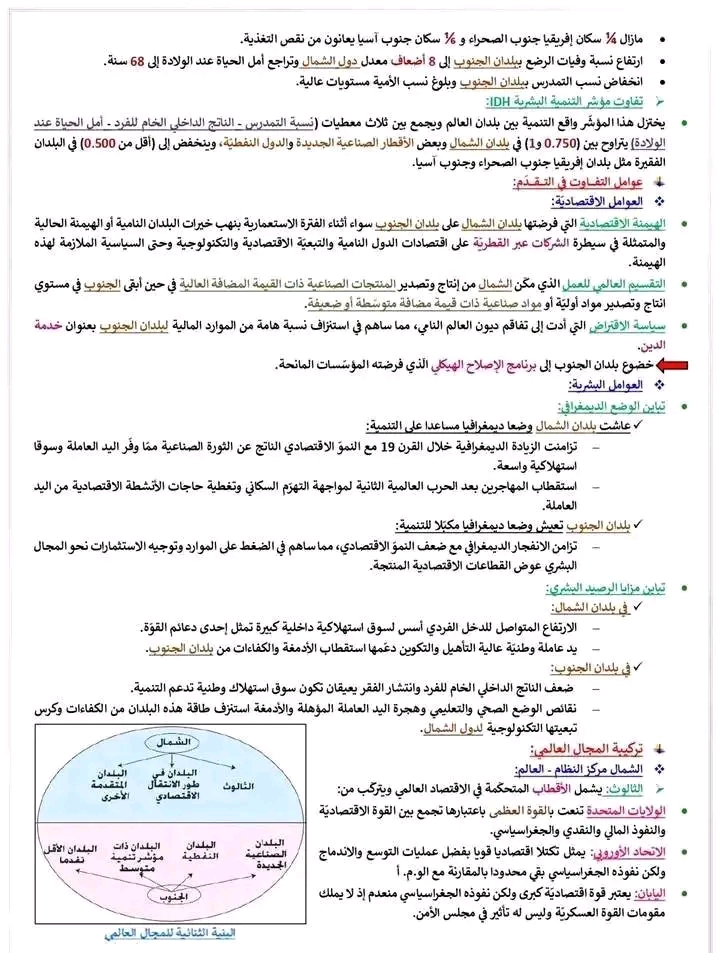 • مازال ¼ سكان إفريقيا جنوب الصحراء و ⅙ سكان جنوب آسيا يعانون من نقص التغذية.
• ارتفاع نسبة وفيات الرضع ببلدان الجنوب إلى 8 أضعاف معدل دول الشمال وتراجع أمل الحياة عند الولادة إلى 68 سنة.
• انخفاض نسب التمدرس ببلدان الجنوب وبلوغ نسب الأمية مستويات عالية.
➢ تفاوت مؤشر التنمية البشرية IDH:
• يختزل هذا المؤشّر واقع التنمية بين بلدان العالم ويجمع بين ثلاث معطيات (نسبة التمدرس - الناتج الداخلي الخام للفرد - أمل الحياة عند
الولادة) يتراوح بين (0.750 و1) في بلدان الشمال وبعض الأقطار الصناعية الجديدة والدول النفطيّة، وينخفض إلى (أقل من 0.500) في البلدان
الفقيرة مثل بلدان إفريقيا جنوب الصحراء وجنوب آسيا.
عوامل التفاوت في التـقـدّم:
❖ العوامل الاقتصاديّة:
• الهيمنة الاقتصادية التي فرضتها بلدان الشمال على بلدان الجنوب سواء أثناء الفترة الاستعمارية بنهب خيرات البلدان النامية أو الهيمنة الحالية
والمتمثلة في سيطرة الشركات عبر القطريّة على اقتصادات الدول النامية والتبعيّة الاقتصادية والتكنولوجية وحتى السياسية الملازمة لهذه
الهيمنة.
• التقسيم العالمي للعمل الذي مكّن الشمال من إنتاج وتصدير المنتجات الصناعية ذات القيمة المضافة العالية في حين أبقى الجنوب في مستوي
انتاج وتصدير مواد أوليّة أو مواد صناعية ذات قيمة مضافة متوسّطة أو ضعيفة.
• سياسة الاقتراض التي أدت إلى تفاقم ديون العالم النامي، مما ساهم في استنزاف نسبة هامة من الموارد المالية لبلدان الجنوب بعنوان خدمة
الدين.
خضوع بلدان الجنوب إلى برنامج الإصلاح الهيكلي الّذي فرضته المؤسّسات المانحة.
❖ العوامل البشرية:
• تباين الوضع الديمغرافي:
✓ عاشت بلدان الشمال وضعا ديمغرافيا مساعدا على التنمية:
– تزامنت الزيادة الديمغرافية خلال القرن 19 مع النموّ الاقتصادي الناتج عن الثورة الصناعية ممّا وفّر اليد العاملة وسوقا
استهلاكية واسعة.
– استقطاب المهاجرين بعد الحرب العالمية الثانية لمواجهة التهرّم السكاني وتغطية حاجات الأنشطة الاقتصادية من اليد
العاملة.
✓ بلدان الجنوب تعيش وضعا ديمغرافيا مكبّلا للتنمية:
– تزامن الانفجار الديمغرافي مع ضعف النموّ الاقتصادي، مما ساهم في الضغط على الموارد وتوجيه الاستثمارات نحو المجال
البشري عوض القطاعات الاقتصادية المنتجة.
• تباين مزايا الرصيد البشري:
✓ في بلدان الشمال:
– الارتفاع المتواصل للدخل الفردي أسس لسوق استهلاكية داخلية كبيرة تمثل إحدى دعائم القوّة.
– يد عاملة وطنيّة عالية التأهيل والتكوين دعّمها استقطاب الأدمغة والكفاءات من بلدان الجنوب.
✓ في بلدان الجنوب:
– ضعف الناتج الداخلي الخام للفرد وانتشار الفقر يعيقان تكون سوق استهلاك وطنية تدعم التنمية.
– نقائص الوضع الصحي والتعليمي وهجرة اليد العاملة المؤهلة والأدمغة استنزف طاقة هذه البلدان من الكفاءات وكرس
تبعيتها التكنولوجية لدول الشمال.
تركيبة المجال العالمي:
❖ الشمال مركز النظام - العالم:
➢ الثالوث: يشمل الأقطاب المتحكّمة في الاقتصاد العالمي ويتركّب من:
• الولايات المتحدة تنعت بالقوة العظمى باعتبارها تجمع بين القوة الاقتصاديّة
والنفوذ المالي والنقدي والجغراسياسي.
• الاتحاد الأوروبي: يمثل تكتلا اقتصاديا قويا بفضل عمليات التوسع والاندماج
ولكن نفوذه الجغراسياسي بقي محدودا بالمقارنة مع الو.م. أ
• اليابان: يعتبر قوة اقتصاديّة كبرى ولكن نفوذه الجغراسياسي منعدم إذ لا يملك
مقومات القوة العسكريّة وليس له تأثير في مجلس الأمن.
الشمال
الثالوث
البلدان في
طور الانتقال
الاقتصادي
البلدان
المتقدمة
الأخرى
البلدان
الصناعية
الجديدة
البلدان
النفطية
البلدان ذات
مؤشر تنمية
متوسط
البلدان الأقل
تقدما
الجنوب
البنية الثنائية للمجال العالمي